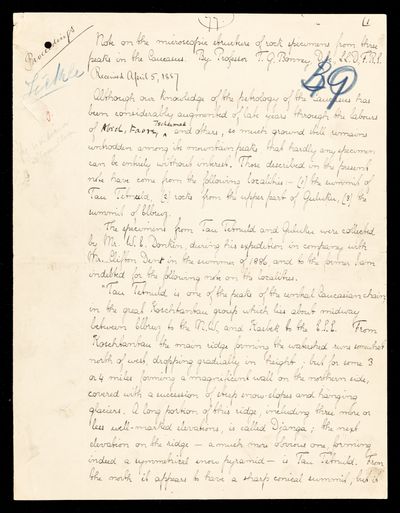 77
1
Proceedings
Note on the microscopic structure of rock specimens from three
peaks in the Caucasus. By Professor T. G. Bonney, D.Sc. LL.D. F.R.S.
Received April 5, 1887
Although our knowledge of the petrology of the Caucasus has
been considerably augmented of late years through the labours
of Abich, Favre, Tschermak and others, so much ground still remains
untrodden among its mountain peaks that hardly any specimen
can be entirely without interest. Those described in the present
note have come from the following localities – (1) the summit of
Tau Tetnuld, (2) rocks from the upper part of Guluku, (3) the
summit of Elbruz.
The specimens from Tau Tetnuld and Guluku were collected
by Mr. W. F. Donkin, during his expedition in company with
Mr. Clinton Dent in the summer of 1886, and to the former I am
indebted for the following note on the localities.
"Tau Tetnuld is one of the peaks of the central Caucasian chain
in the great Koschtantau group which lies about midway
between Elbruz to the N.W. and Kasbek to the E.S.E. From
Koschtantau the main ridge forming the watershed runs somewhat
north of west, dropping gradually in height; but for some 3
or 4 miles forming a magnificent wall on the northern side,
covered with a succession of steep snow-slopes and hanging
glaciers. A long portion of this ridge, including three more or
less well-marked elevations, is called Djanga; the next
elevation on the ridge – a much more obvious one, forming
indeed a symmetrical snow pyramid – is Tau Tetnuld. From
the north it appears to have a sharp conical summit, but it